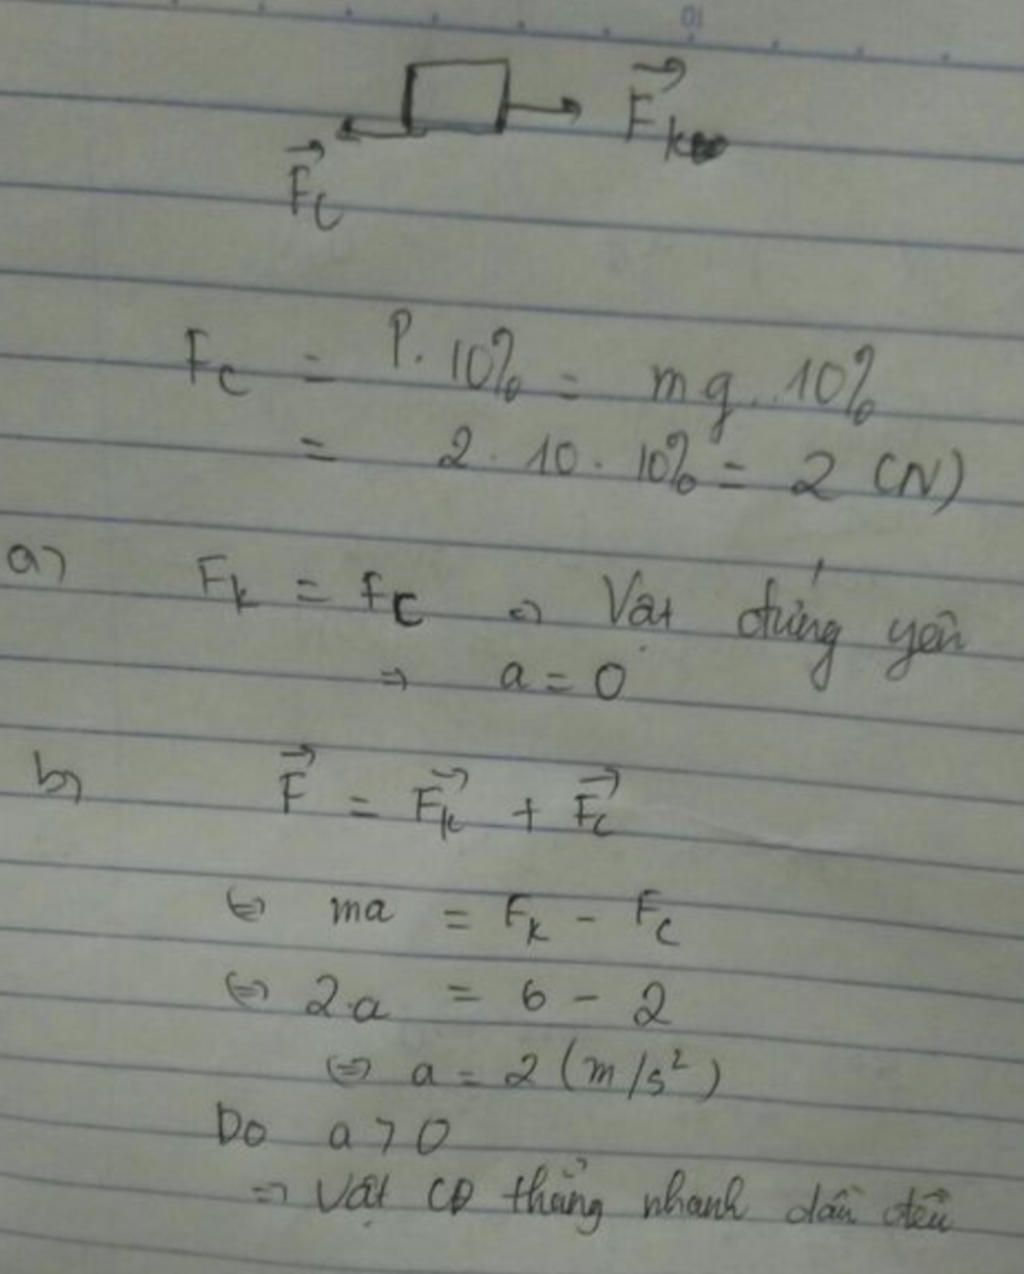 10
F⃗k
F⃗c
Fc = P. 10% = mg. 10%
= 2. 10. 10% = 2 (N)
a) Fk = Fc => Vật đứng yên
=> a = 0
b) F⃗ = F⃗k + F⃗c
<=> ma = Fk - Fc
<=> 2.a = 6 - 2
<=> a = 2 (m/s²)
Do a > 0
=> Vật CĐ thẳng nhanh dần đều